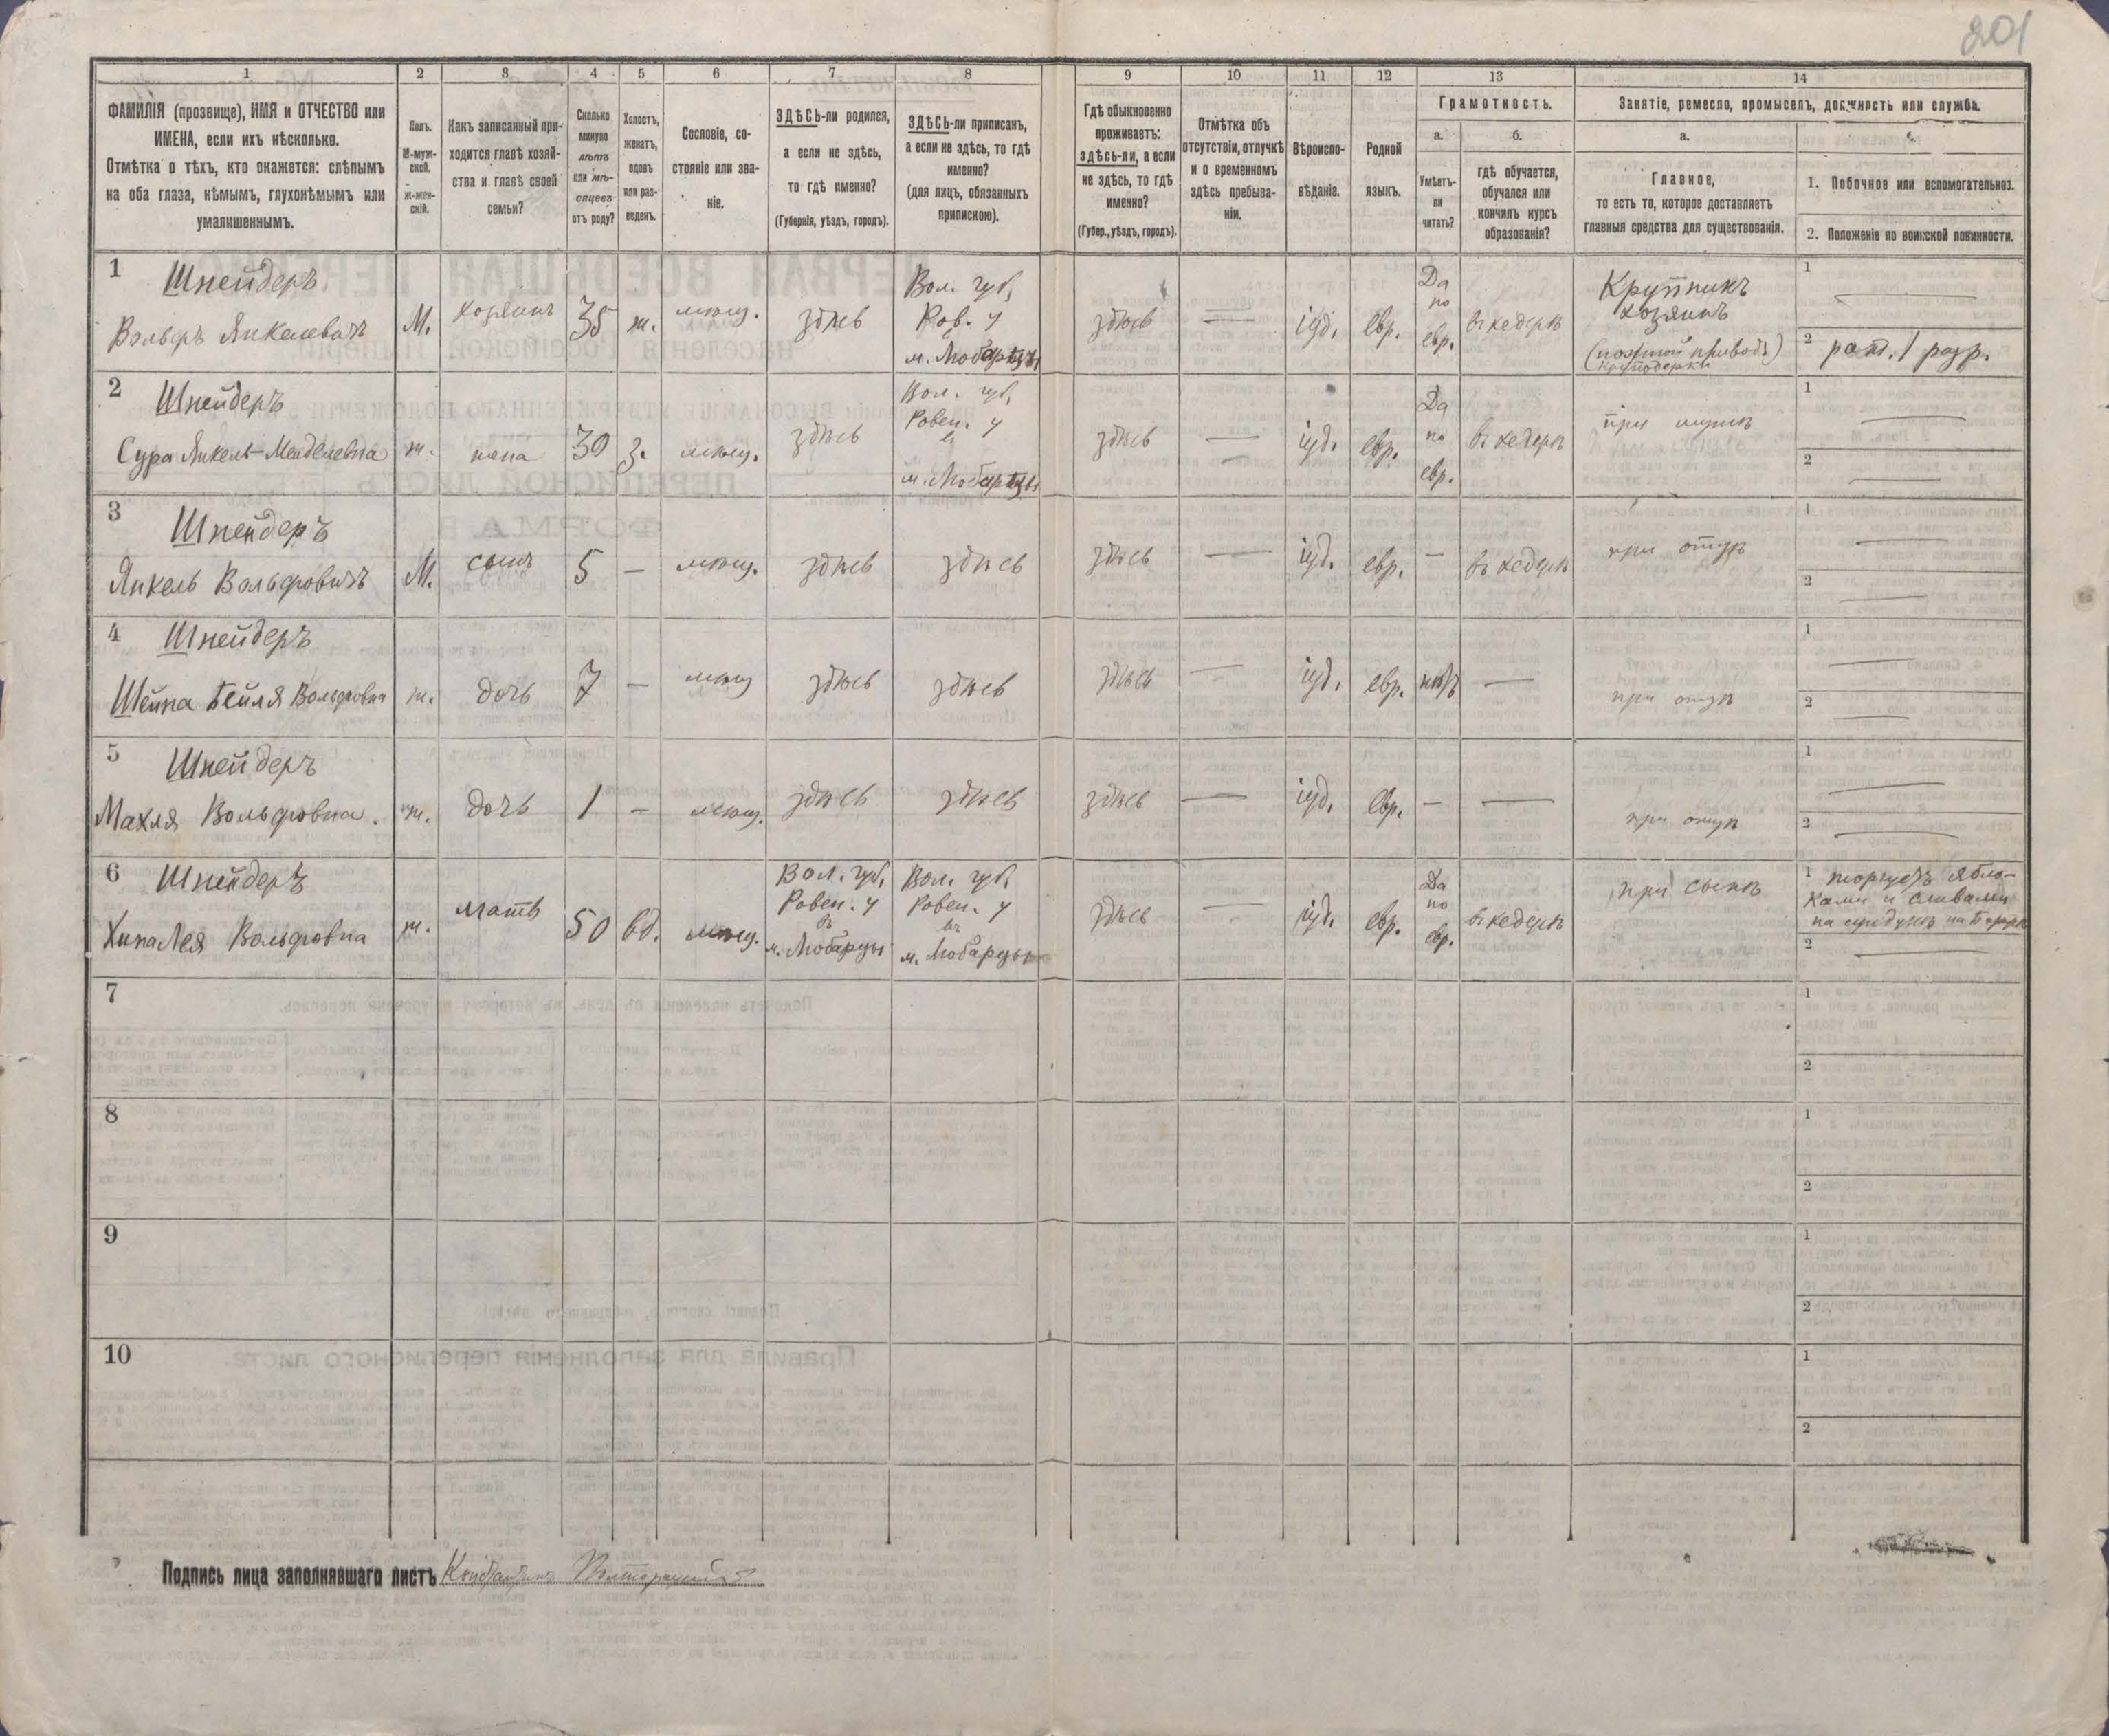 201
1 2 3 4 5 6 7 8 9 10 11 12 13 14
ФАМИЛІЯ (прозвище), ИМЯ и ОТЧЕСТВО или
ИМЕНА, если ихъ нѣсколько.
Отмѣтка о тѣхъ, кто окажется: слѣпымъ
на оба глаза, нѣмымъ, глухонѣмымъ или
умалишеннымъ.
Полъ.
М-муж-
ской.
ж-жен-
скій.
Какъ записанный при-
ходится главѣ хозяй-
ства и главѣ своей
семьи?
Сколько
минуло
лѣтъ
или мѣ-
сяцевъ
отъ роду?
Холостъ,
женатъ,
вдовъ
или раз-
веденъ.
Сословіе, со-
стояніе или зва-
ніе.
ЗДѢСЬ-ли родился,
а если не здѣсь,
то гдѣ именно?
(Губернія, уѣздъ, городъ).
ЗДѢСЬ-ли приписанъ,
а если не здѣсь, то гдѣ
именно?
(для лицъ, обязанныхъ
припискою).
Гдѣ обыкновенно
проживаетъ:
здѣсь-ли, а если
не здѣсь, то гдѣ
именно?
(Губер., уѣздъ, городъ).
Отмѣтка объ
отсутствіи, отлучкѣ
и о временномъ
здѣсь пребыва-
ніи.
Вѣроиспо-
вѣданіе.
Родной
языкъ.
Грамотность.
а.
Умѣетъ-
ли
читать?
б.
гдѣ обучается,
обучался или
кончилъ курсъ
образованія?
Занятіе, ремесло, промыселъ, должность или служба.
а.
Главное,
то есть то, которое доставляетъ
главныя средства для существованія.
1. Побочное или вспомогательное.
2. Положеніе по воинской повинности.
1 Шнейдеръ
Вольфъ Янкелевичъ
М.
хозяинъ
35
ж.
мѣщ.
здѣсь
Вол. губ.
Ров. у
м. Любарцы
здѣсь
—
іуд.
евр.
Да
по
евр.
въ хедерѣ
Крупникъ
хозяинъ
1 —
2 рат. 1 разр.
2 Шнейдеръ
Сура Янкель-Менделевна
ж.
жена
30
з.
мѣщ.
здѣсь
Вол. губ.
Ровен. у
въ
м. Любарцы
здѣсь
—
іуд.
евр.
Да
по
евр.
въ хедерѣ
при мужѣ
1 —
2 —
3 Шнейдеръ
Янкель Вольфовичъ
М.
сынъ
5
—
мѣщ.
здѣсь
здѣсь
здѣсь
—
іуд.
евр.
—
въ хедерѣ
при отцѣ
1 —
2 —
4 Шнейдеръ
Шейна Бейля Вольфовна
ж.
дочь
7
—
мѣщ
здѣсь
здѣсь
здѣсь
—
іуд.
евр.
нѣтъ
—
при отцѣ
1 —
2 —
5 Шнейдеръ
Махля Вольфовна.
ж.
дочь
1
—
мѣщ.
здѣсь
здѣсь
здѣсь
—
іуд.
евр.
—
—
при отцѣ
1 —
2 —
6 Шнейдеръ
Хина Лея Вольфовна
ж.
мать
50
вд.
мѣщ.
Вол. губ.
Ровен. у
въ
м. Любарцы
Вол. губ.
Ровен. у
въ
м. Любарцы
здѣсь
—
іуд.
евр.
Да
по
евр.
въ хедерѣ
при сынѣ
1 торгуетъ ябло-
ками и сливами
2 —
7
1
2
8
1
2
9
1
2
10
1
2
Подпись лица заполнявшаго листъ